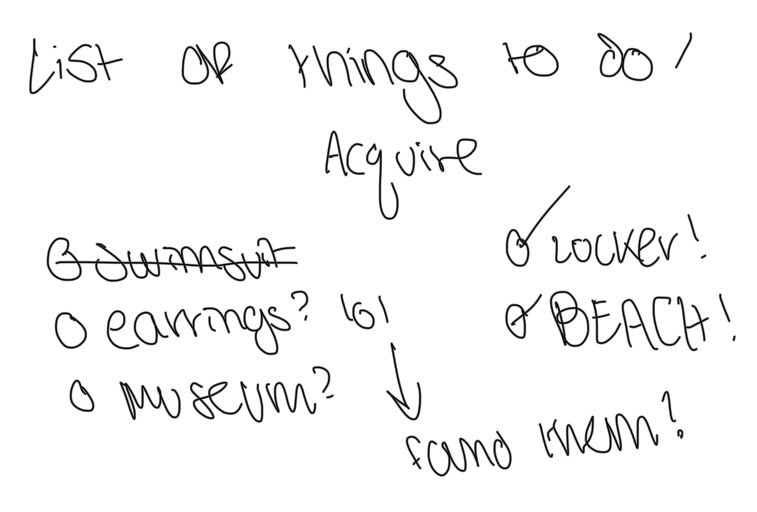 List of things to do/
Acquire
swimsuit
earrings? lol
museum?
Locker!
BEACH!
found them!